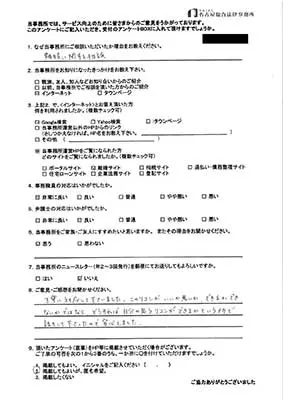 名古屋総合法律事務所
当事務所では、サービス向上のために皆さまからのご意見をうかがっております。
このアンケートにご記入いただき、受付のアンケートBOXに入れて頂けますでしょうか。
1. なぜ当事務所にご相談いただいたか理由をお教えください。
離婚に関する相談
2. 当事務所をお知りになったきっかけをお教え下さい。
□ 親族、友人、知人などお知り合いからのご紹介
□ 以前、当事務所でご相談を頂いた方からのご紹介
☑ インターネット □ タウンページ
3. 上記2. で、(インターネット)とお答え頂いた方
何を利用されましたか。(複数チェック可)
☑ Google検索 □ Yahoo検索 □ タウンページ
□ 当事務所運営以外のHPからのリンク
(さしつかえなければ、HP名をお教え下さい。)
□ その他(
※ 当事務所運営HPをご覧になられた方
どのサイトをご覧になられましたか。(複数チェック可)
□ ポータルサイト ☑ 離婚サイト □ 相続サイト □ 過払い・債務整理サイト
□ 住宅ローンサイト □ 企業法務サイト □ 登記サイト
4. 事務職員の対応はいかがでしたか。
☑ 非常に良い □ 良い □ 普通 □ やや悪い □ 悪い
5. 弁護士の対応はいかがでしたか。
☑ 非常に良い □ 良い □ 普通 □ やや悪い □ 悪い
6. 当事務所をご家族・ご友人にすすめたいと思いますか。またその理由をお聞かせください。
☑ 思う □ 思わない
7. 当事務所のニュースレター(年2～3回発行)を郵送にてお送りしてもよろしいですか。
□ はい ☑ いいえ
8. ご意見・ご感想をお聞かせください。
9. 頂いたアンケート(直筆)をHP等に掲載させていただく場合がございます。
ご了承の可否を次の1から3番のうち、一か所に○を付けていただけますでしょうか。
1. 掲載してもよい。イニシャルをご記入ください(
2. 掲載してもよいが、匿名希望。
3. 掲載したくない
ご協力ありがとうございました